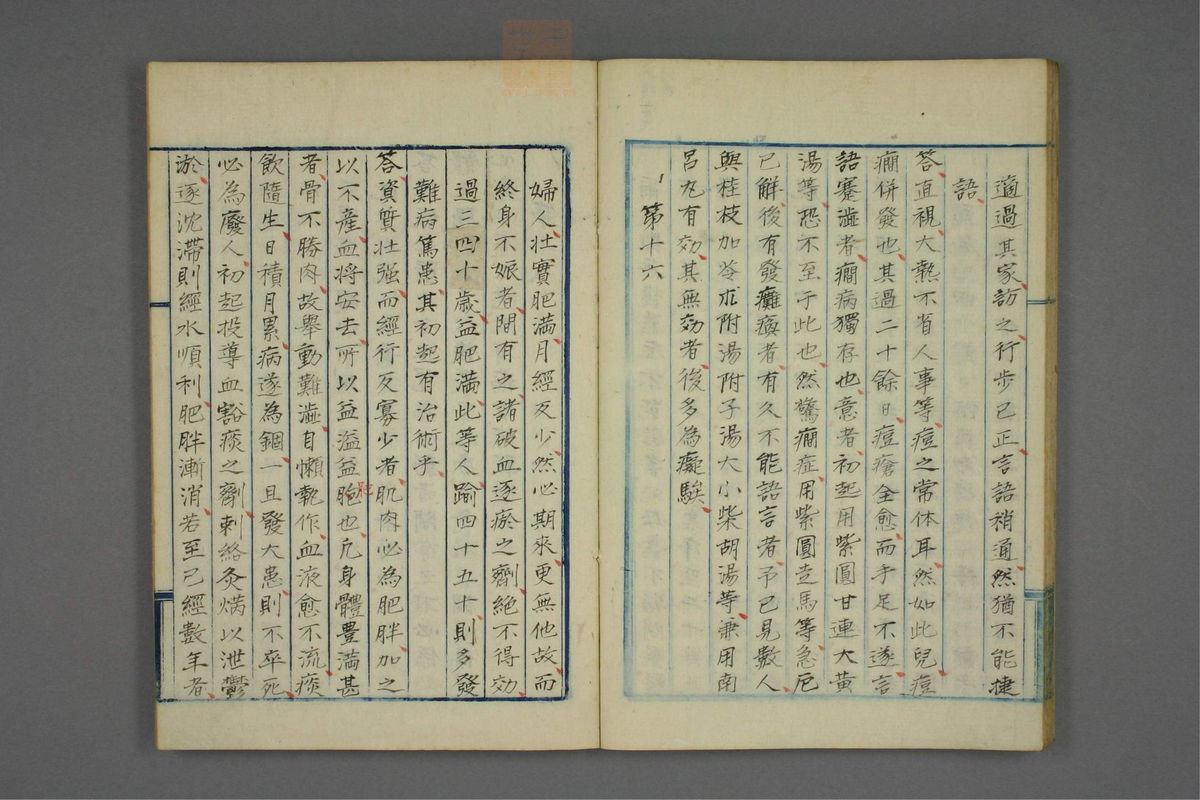 適過其家訪之行步已正言語稍通然猶不能捷
語
答直視大熱不省人事等痘之常体耳然如此兒痘
癇併發也其過二十餘日痘瘡全愈而手足不遂言
語蹇澁者癇病獨存也意者初起用紫圓甘連大黃
湯等恐不至于此也然驚癇症用紫圓走馬等急卮
已解後有發癱瘓者有久不能語言者予已見數人
與桂枝加苓朮附湯附子湯大小柴胡湯等兼用南
呂丸有効其無効者後多為癡騃
第十六
婦人壮實肥満月經反少然必期來更無他故而
終身不娠者間有之諸破血逐瘀之劑絶不得効
過三四十歳益肥満此等人踰四十五十則多發
難病篤患其初起有治術乎
答資質壮强而經行反寡少者肌肉必為肥胖加之
以不産血将安去所以益溢益胞也凢身體豊満甚
肥
者骨不勝肉故擧動難澁自懶執作血液愈不流痰
飲隨生日積月累病遂為錮一旦發大患則不卒死
必為廢人初起投導血豁痰之劑刺絡灸焫以泄鬱
淤逐沈滞則經水順利肥胖漸消若至已經數年者